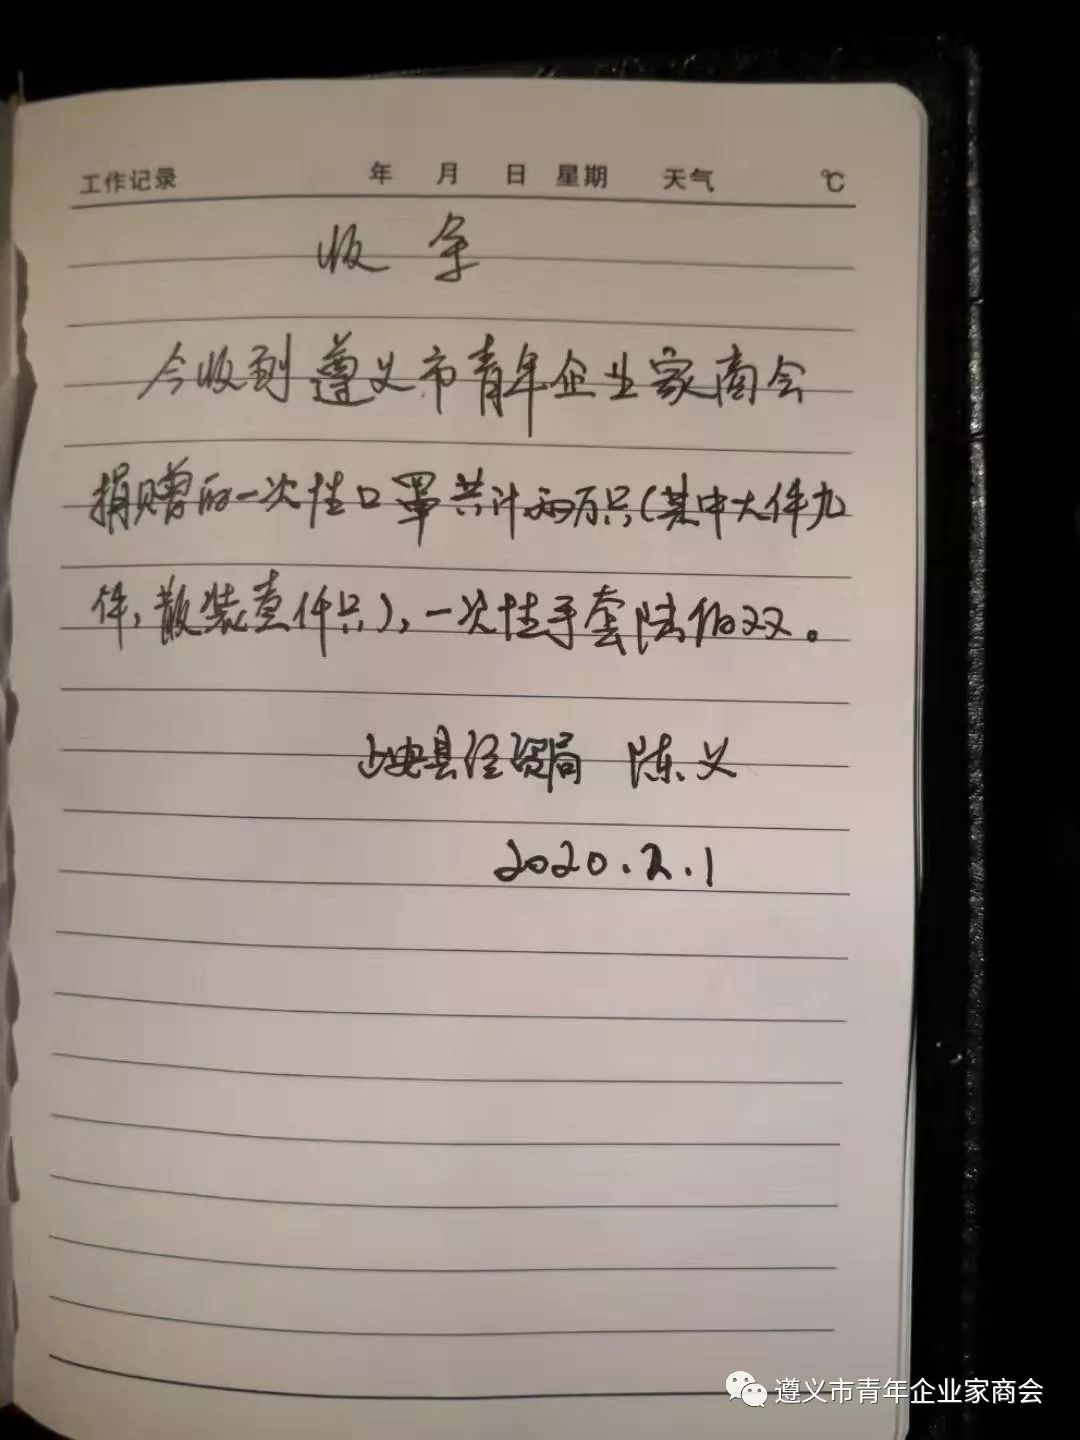 工作记录 年 月 日 星期 天气 ℃
收条
今收到遵义市青年企业家商会
捐赠的一次性口罩共计两万只(其中大件九
件,散装壹仟只),一次性手套陆佰双。
县经贸局 陈义
2020.2.1
遵义市青年企业家商会